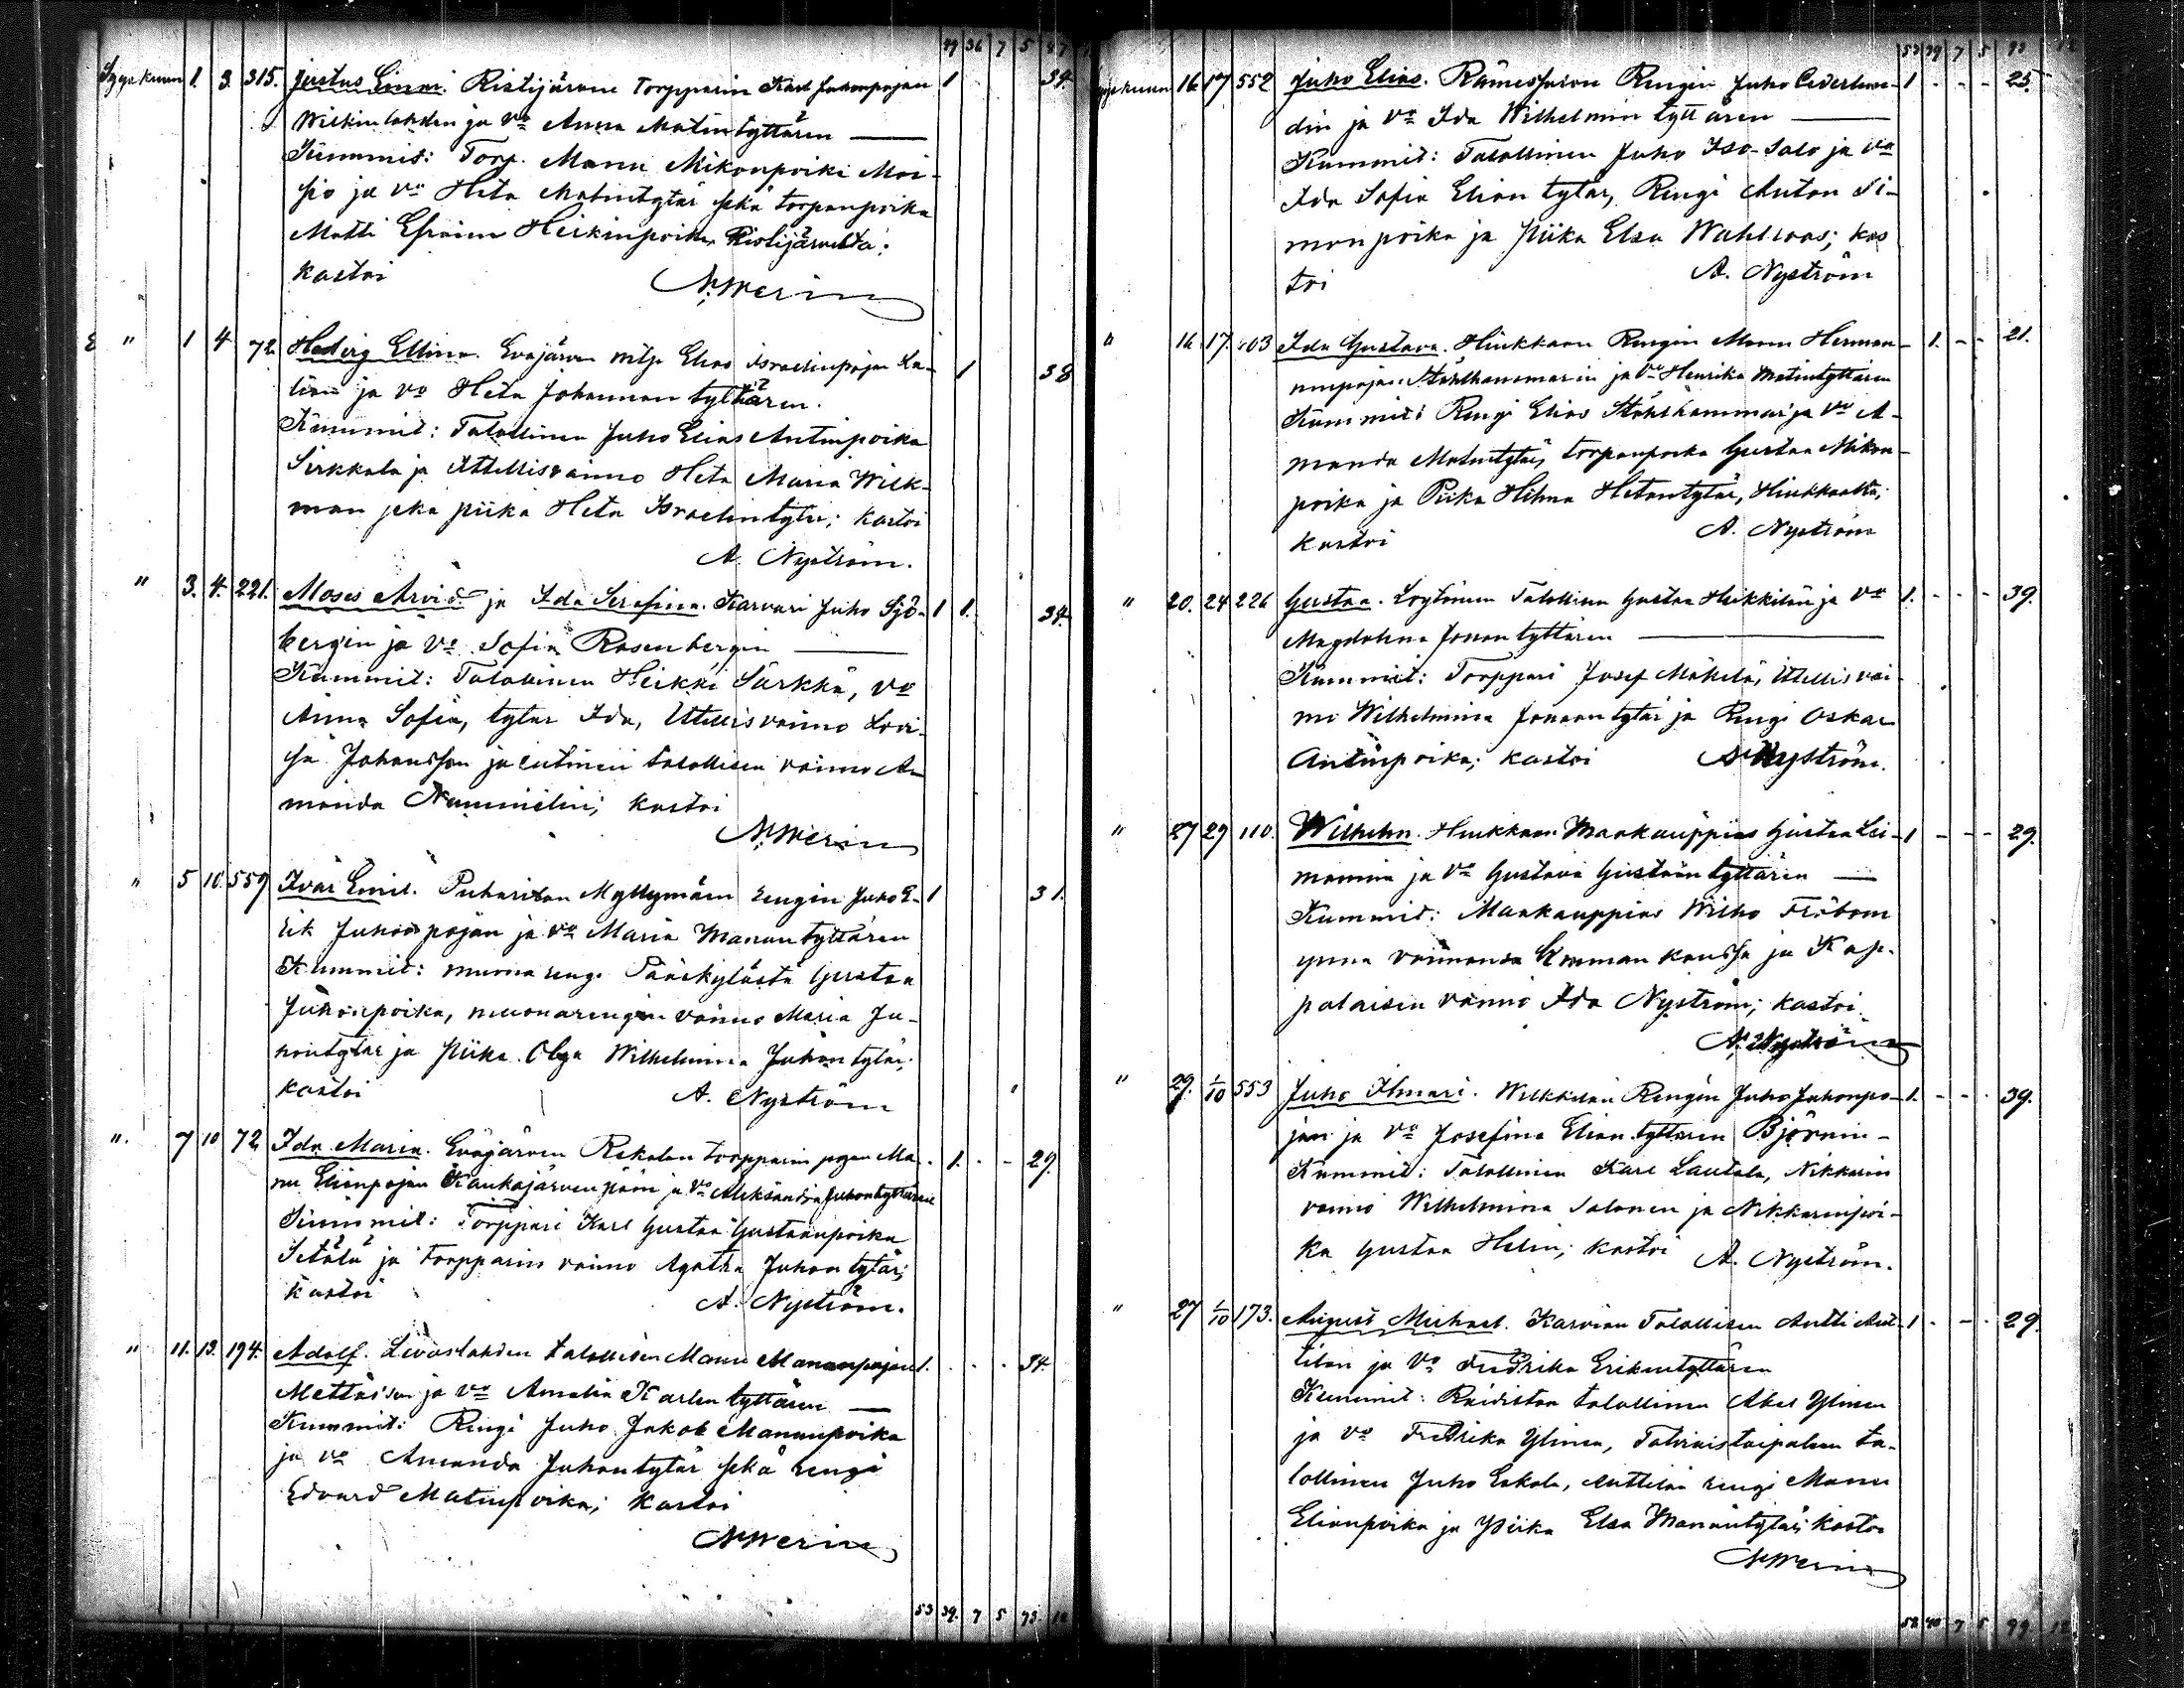 49 36 7 5 87
Syyskuun 1. 3. 315. Justus Einari. Ristijärven Torpparin Karl Juhonpojan 1 34.
Wilkinlahden ja vo Anna Matintyttären
Kummit: Torp. Manu Mikonpoika Moi-
sio ja vo Heta Matintytär sekä torpanpoika
Matti Efraim Heikinpoika Ristijärveltä;
kastoi
" 1 4 72 Hedvig Ellina. Eväjärven Elias Israelinpojan 1 38
ja vo Heta Johannan tyttären.
Kummit: Talollinen Juho Elias Antinpoika
Sirkkala ja Itellisvaimo Heta Maria Wilk-
man seka piika Heta Israelintytär; kastoi
A. Nyström.
" 3. 4. 221. Moses Arvid ja Ida Serafina. Karvari Juho Sjö- 1 1. 34.
bergin ja vo Sofia Rosenbergin
Kummit: Talollinen Heikki Särkkä, vo
Anna Sofia, tytär Ida, Itellisvaimo Lovi-
sa Johansson ja entinen talollisen vaimo A-
manda Nummelin; kastoi
" 5 10. 559 Ivar Emil. Puharilan Myllymäen rengin Juho E- 1 31.
rik Juhonpojan ja vo Maria Manun tyttären
Kummit: muona rengi Pääskylästä Gustaa
Juhonpoika, muonarengin vaimo Maria Ju-
hontytär ja piika Olga Wilhelmina Juhontytär;
kastoi A. Nyström
" 7 10 72 Ida Maria. Eväjärven Rekolan torpparin pojan Ma- . 1. - - 29.
nu Elianpojan Kaukajärvenpään ja vo Aleksandra Juhontyttären
Kummit: Torppari Karl Gustaa Gustaanpoika
Setälä ja torpparin vaimo Agatha Juhon tytär;
kastoi A. Nyström.
" 11. 13. 194. Adolf. Liwaslahden talollisen Manu Manunpojan 1. . . . 34.
Mettäisen ja vo Amalia Karlen tyttären
Kummit: Rengi Juho Jakob Manunpoika
ja vo Amanda Juhontytär sekä rengi
Edvard Matinpoika; kastoi
53 39. 7 5 93. 12
53 39 7 5 93 12
Syyskuun 16. 17 552 Juho Elias. Rämessalon Rengin Juho Cederlun- 1 - - - 25.
din ja vo Ida Wilhelmin tyttären
Kummit: Talollinen Juho Iso-Salo ja vo
Ida Sofia Elian tytär, Rengi Anton Si-
monpoika ja piika Elsa Wahlroos; kas
toi A. Nyström
" 16. 17. 403 Ida Gustava. Hinkkaan Rengin Manu Herman- - 1. - - 21.
ninpojan Stählhammarin ja vo Henrika Matintyttären
Kummit: Rengi Elias Stählhammar ja vo A-
manda Matintytär, torpanpoika Gustaa Mikon-
poika ja Piika Hilma Hetantytär, Hinkkaalta;
kastoi A. Nyström
" 20. 24 226 Gustaa. Löytönen Talollinen Gustaa Heikkilän ja vo 1. - - - 39.
Magdalena Jonan tyttären
Kummit: Torppari Josef Mäkelä, Itellisvai-
mo Wilhelmina Jonaan tytär ja Rengi Oskar
Antinpoika; kastoi A. Nyström.
" 27 29 110. Wilhelm. Hinkkaan Maakauppias Gustaa Lei- 1 - - - 29.
monin ja vo Gustava Gustaan tyttären
Kummit: Maakauppias Wilho Fröbom
ynnä vaimonsa Emman kanssa ja Kap-
palaisen vaimo Ida Nyström; kastoi
A. Nyström
" 29. 1/10 553 Juho Ilmari. Wilkkilän Rengin Juho Juhonpo- 1. - - - 39.
jan ja vo Josefina Elian tyttären Björnin-
Kummit: Talollinen Karl Lautala, Nikkarin
vaimo Wilhelmina Salonen ja Nikkarinpoi-
ka Gustaa Helin; kastoi A. Nyström.
" 27 1/10 173. August Michael. Karvian Talollisen Antti Ant- 1 . - - 29.
tilan ja vo Fredrika Erikintyttären
Kummit: Talollinen Abel Ylinen
ja vo Fredrika Ylinen, Talviaistaipaleen ta-
lollinen Juho Eskola, Anttilan rengi Manu
Elianpoika ja piika Elsa Manuntytär; kastoi
58 40 7 5 99 12